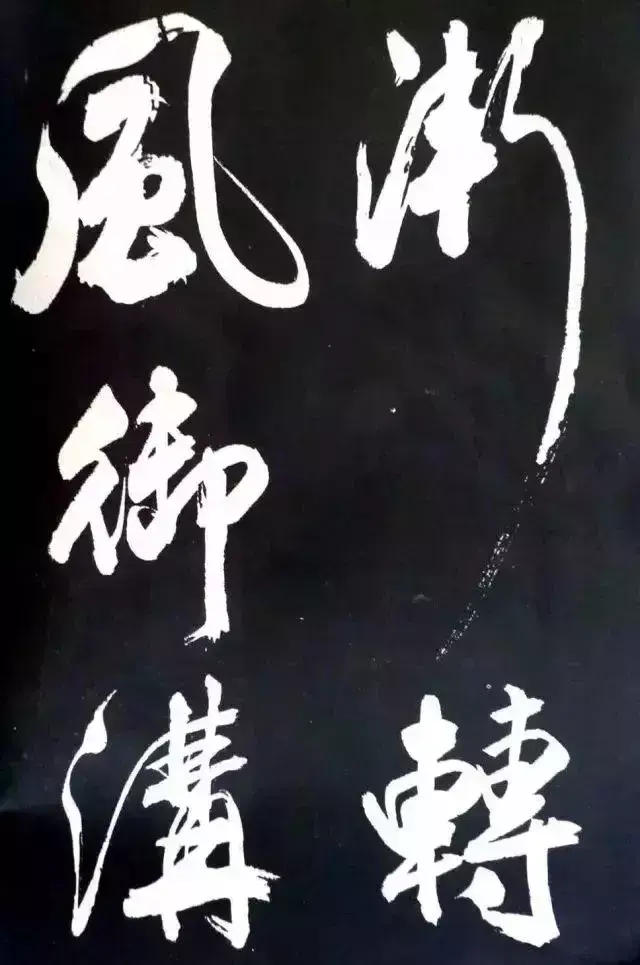 漸轉
風御溝